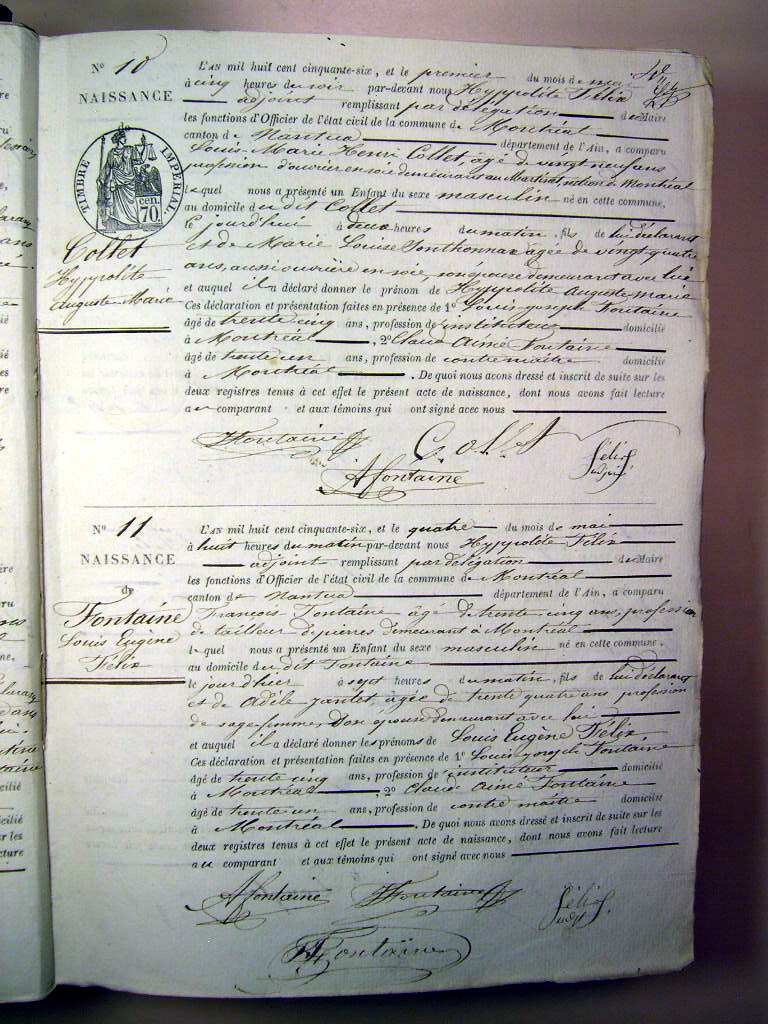 N° 10
NAISSANCE
TIMBRE IMPÉRIAL
70. cen.
Collet
Hyppolite
Auguste Marie
L'AN mil huit cent cinquante-six, et le premier du mois de mai
à cinq heures du soir par-devant nous Hyppolite Félix
adjoint remplissant par délégation de Maire
les fonctions d'Officier de l'état civil de la commune de Montréal
canton de Nantua département de l'Ain, a comparu
Louis-Marie Henri Collet, âgé de vingt neuf ans
profession d'ouvrier en soie demeurant au Martinet, section de Montréal
lequel nous a présenté un Enfant du sexe masculin né en cette commune,
au domicile du dit Collet
le jourd'hui à deux heures du matin, fils de lui déclarant
et de Marie Louise Ponthonnax âgée de vingt quatre
ans, aussi ouvrière en soie, son épouse demeurant avec lui
et auquel il a déclaré donner le prénom de Hyppolite Auguste marie
Ces déclaration et présentation faites en présence de 1° Louis joseph Fontaine
âgé de trente cinq ans, profession d'instituteur domicilié
à Montréal, 2° Claude Aimé Fontaine
âgé de trente un ans, profession de contre maitre domicilié
à Montréal. De quoi nous avons dressé et inscrit de suite sur les
deux registres tenus à cet effet le présent acte de naissance, dont nous avons fait lecture
au comparant et aux témoins qui ont signé avec nous
Fontaine Collet Félix
adjoint
A fontaine
N° 11
NAISSANCE
de
Fontaine
Louis Eugène
Félix
L'AN mil huit cent cinquante-six, et le quatre du mois de mai
à huit heures du matin par-devant nous Hyppolite Félix
adjoint remplissant par délégation de Maire
les fonctions d'Officier de l'état civil de la commune de Montréal
canton de Nantua département de l'Ain, a comparu
François Fontaine âgé de trente-cinq ans, profession
de tailleur de pierres demeurant à Montréal
lequel nous a présenté un Enfant du sexe masculin né en cette commune,
au domicile du dit Fontaine
le jour d'hier à sept heures du matin, fils de lui déclarant
et de Adèle Jantet, âgée de trente quatre ans, profession
de sage-femme, son épouse demeurant avec lui
et auquel il a déclaré donner les prénoms de Louis Eugène Félix
Ces déclaration et présentation faites en présence de 1° Louis joseph Fontaine
âgé de trente cinq ans, profession d'instituteur domicilié
à Montréal, 2° Claude Aimé Fontaine
âgé de trente un ans, profession de contre maître domicilié
à Montréal. De quoi nous avons dressé et inscrit de suite sur les
deux registres tenus à cet effet le présent acte de naissance, dont nous avons fait lecture
au comparant et aux témoins qui ont signé avec nous
A fontaine Fontaine Félix
adjt
Fontaine